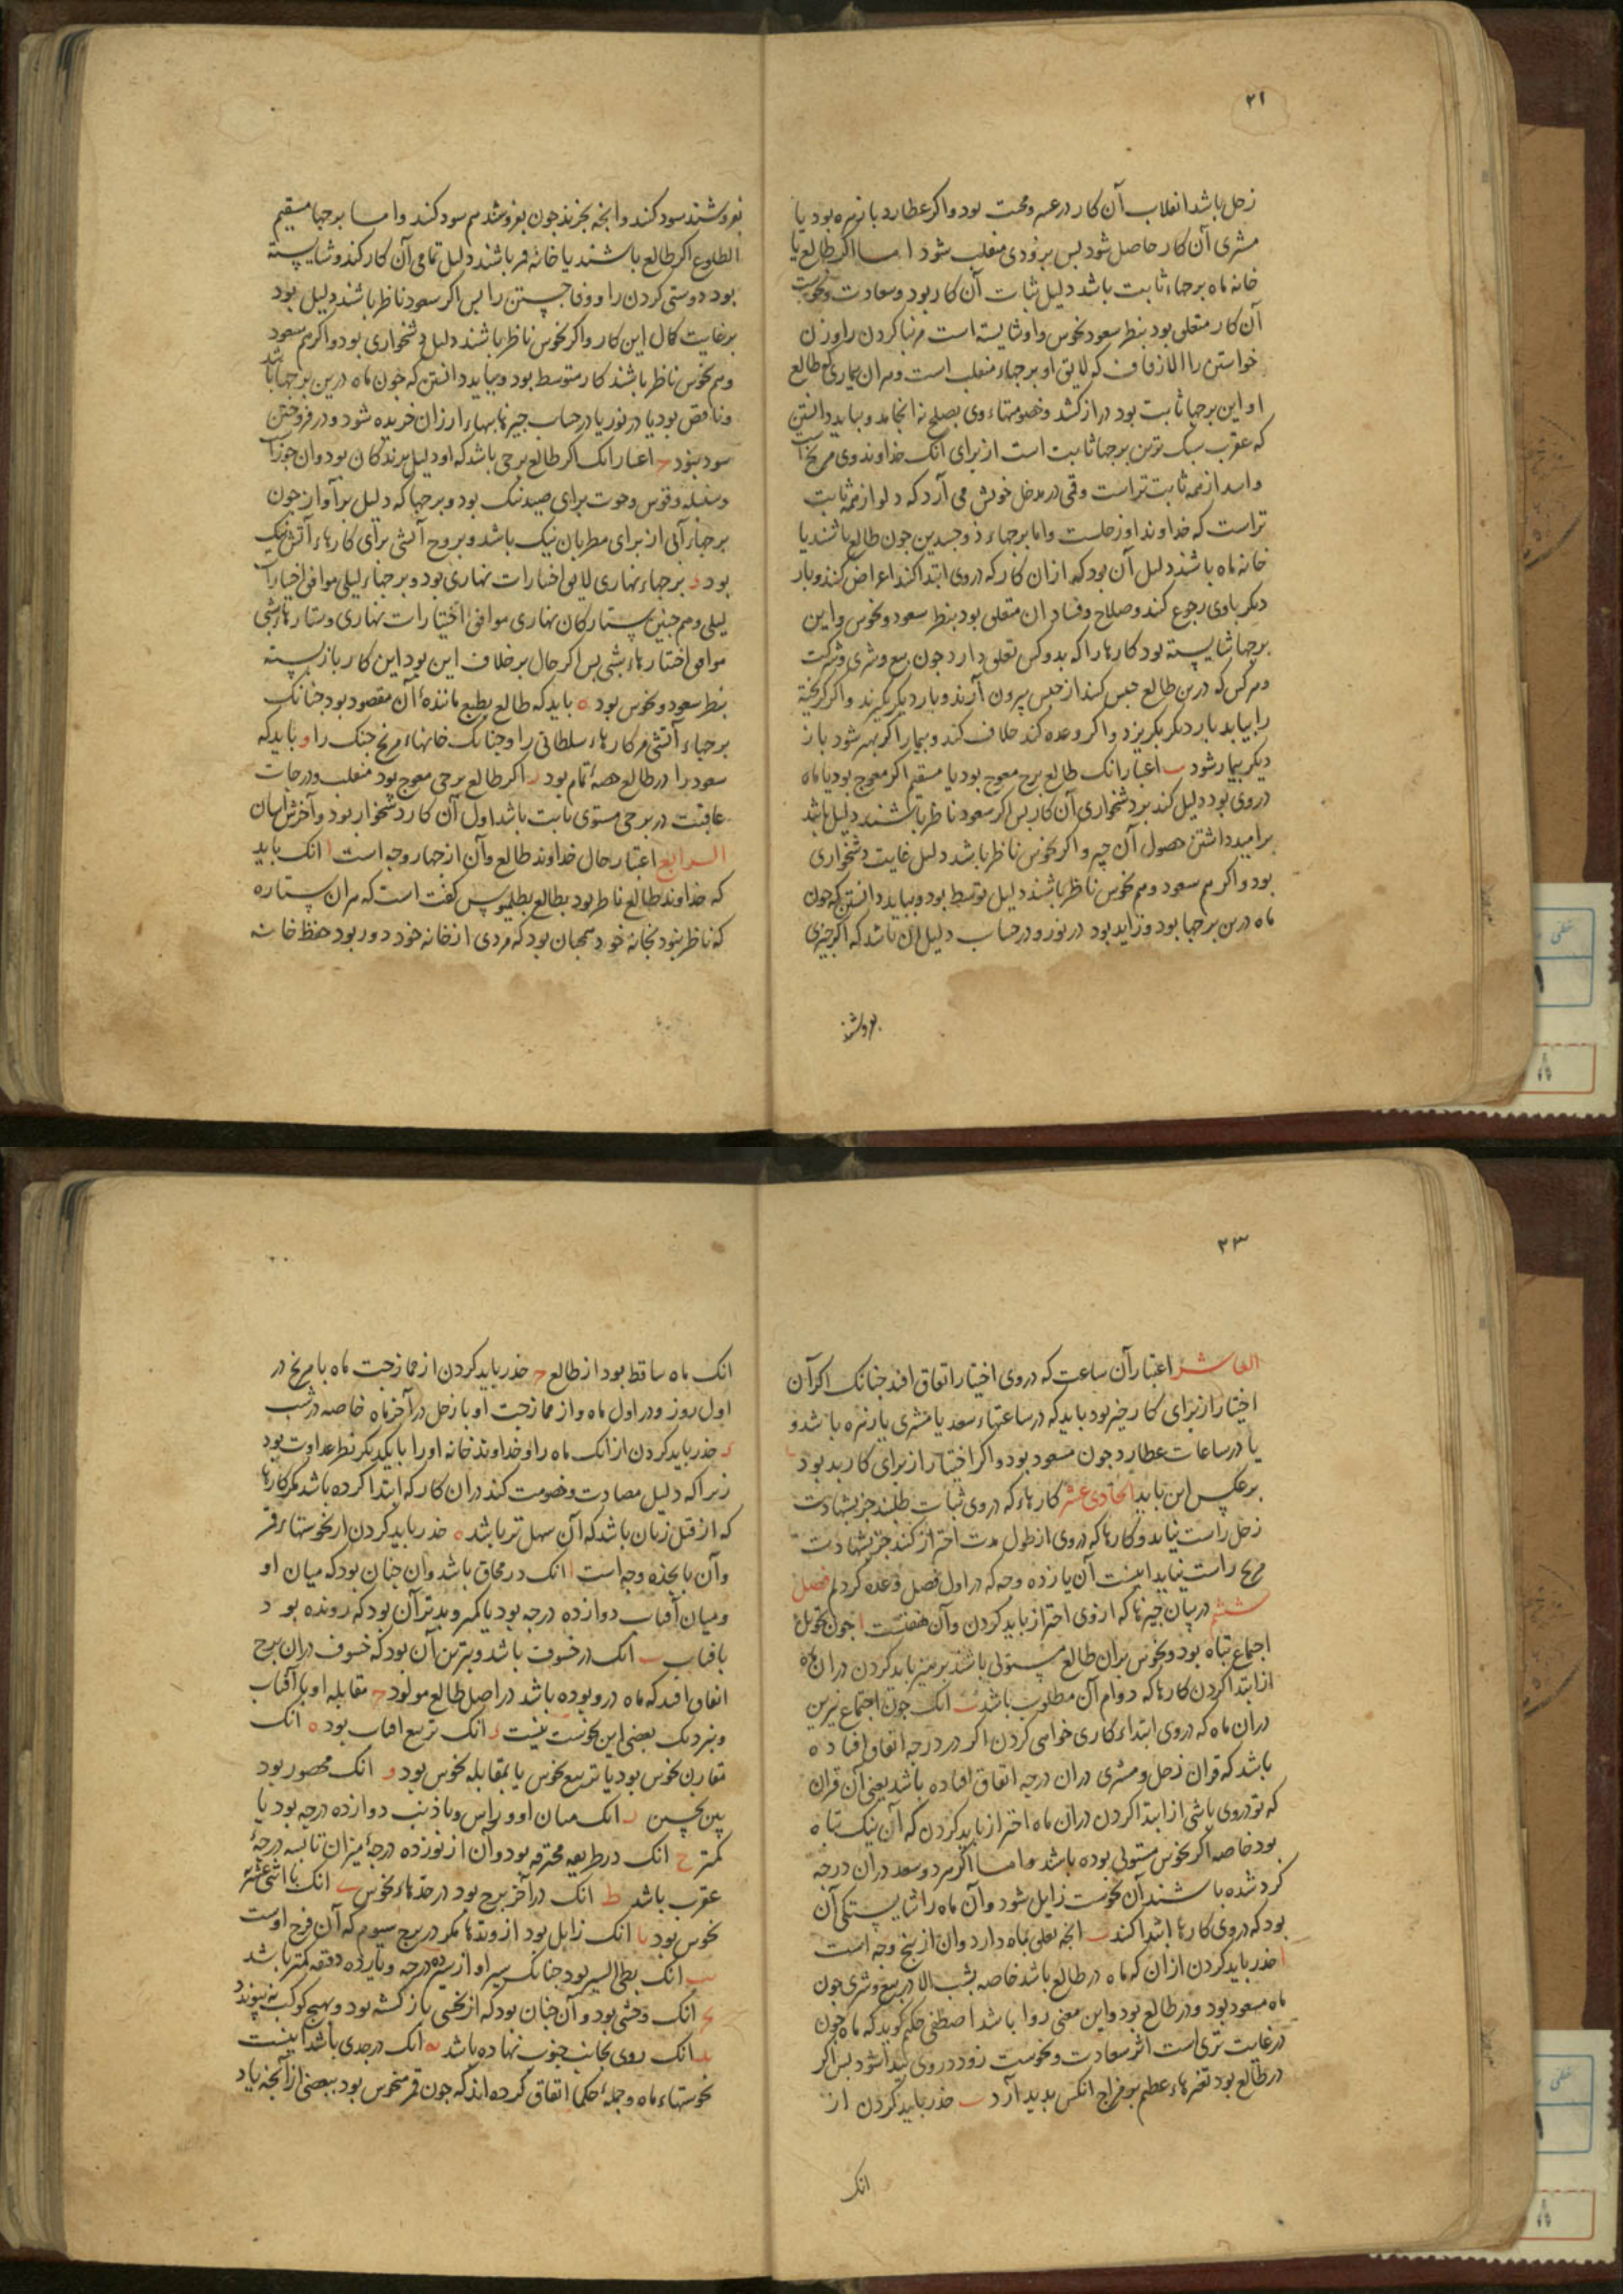 ۲۱
زحل باشد انقلاب آن کار در عسر و محنت بود و اکر عطارد با زهره بود یا
مشری آن کار حاصل شود بس بزودی منقلب شود اما اکر طالع یا
خانه ماه برجهاء ثابت باشد دلیل ثبات آن کار بود و سعادت و نحوست
آن کار متعلق بود بنظر سعود نحوس و او شایسته است مر بنا کردن را و زن
خواستن را الا زفاف که لایق او برجهاء منقلب است و هر ان بیماری که طالع
او این برجها ثابت بود دراز کشد و خصومتهاء وی بصلح نه انجامد و بباید دانستن
که عقرب سبک ترین برجها ثابت است از برای انک خداوند وی مریخ است
و اسد از همه ثابت تر است وقتی در مدخل خویش می آرد که دلو از همه ثابت
تر است که خداوند او زحلست و اما برجهاء ذو جسدین جون طالع باشند یا
خانه ماه باشند دلیل آن بود که از ان کار که دروی ابتدا کند اعراض کنند و بار
دیکر باوی رجوع کند و صلاح و فساد ان متعلق بود بنظر سعود و نحوس و این
برجها شایسته بود کارها را که بدو کس تعلق دارد جون بیع و شری و شرکت
و هر کس که درین طالع حبس کنند از حبس بیرون آرند و بار دیکر بگیرند و اکر کریخته
را بیابد بار دیکر بکریزد و اکر وعده کند خلاف کند و بیمار اکر بهتر شود باز
دیکر بیمار شود ب اعتبار انک طالع برج معوج بود یا مستقیم اکر معوج بود یا ماه
دروی بود دلیل کند بر دشخواری آن کار بس اکر سعود ناظر باشند دلیل باشد
بر امید داشتن حصول آن چیز و اکر نحوس ناظر باشد دلیل غایت دشخواری
بود و اکر هم سعود و هم نحوس ناظر باشند دلیل توسط بود و بباید دانستن که جون
ماه درین برجها بود و زاید بود در نور و در حساب دلیل ان باشد که اکر چیزی
بفروشند
بفروشند سود کنند و انجه بخرند جون بفروشند هم سود کنند و اما برجها مستقیم
الطلوع اکر طالع باشند یا خانه قمر باشند دلیل تمامی آن کار کند و شایسته
بود دوستی کردن را و وفا جستن را بس اکر سعود ناظر باشند دلیل بود
بر غایت کمال این کار و اکر نحوس ناظر باشند دلیل دشخواری بود و اکر هم سعود
و هم نحوس ناظر باشند کار متوسط بود و بباید دانستن که جون ماه درین برجها باشد
و ناقص بود یا در نور یا در حساب چیزها ببهاء ارزان خریده شود و در فروختن
سود نبود ج اعتبار انک اکر طالع برجی باشد که او دلیل پرندکان بود و ان جوزا است
و سنبله و قوس و حوت برای صید نیک بود و برجها که دلیل بر آواز جون
برجهاء آبی از برای مطربان نیک باشد و بروج آتشی برای کارهاء آتش نیک
بود د برجهاء نهاری لایق اختیارات نهاری بود و برجهاء لیلی موافق اختیارات
لیلی و هم جنین ستارکان نهاری موافق اختیارات نهاری و ستارهاء شبی
موافق اختیارهاء شبی بس اکر حال بر خلاف این بود این کار باز بسته
بنظر سعود و نحوس بود ه باید که طالع بطبع ماننده آن مقصود بود جنانک
برجهاء آتشی مر کارهاء سلطانی را و جنانک خانهاء مریخ جنک را و باید که
سعود را در طالع حصه تمام بود ز اکر طالع برجی معوج بود منقلب و درجات
عاقبت در برجی مستوی ثابت باشد اول آن کار دشخوار بود و آخرش آسان
الرابع اعتبار حال خداوند طالع و آن از جهار وجه است ا انک باید
که خداوند طالع ناظر بود بطالع بطلمیوس کفت است که هر ان ستاره
که ناظر نبود بخانه خود همجنان بود که مردی از خانه خود دور بود حفظ خانه
۲۳
العاشر اعتبار آن ساعت که دروی اختیار اتفاق افتد جنانک اکر آن
اختیار از برای کار خیر بود باید که در ساعتهاء سعد یا مشری یا زهره باشد و
یا در ساعات عطارد جون مسعود بود و اکر اختیار از برای کار بد بود
بر عکس این باید الحادی عشر کارهاء که دروی ثبات طلبند جز بشهادت
زحل راست نیاید و کارها که دروی از طول مدت احتراز کنند جز بشهادت
مریخ راست نیاید اینست آن یازده وجه که در اول فصل وعده کردیم فصل
ششم در بیان چیزها که ازوی احتراز باید کردن و آن هفتست ا جون تحویل
اجتماع تباه بود و نحوس بران طالع مستولی باشند برهیز باید کردن دران ماه
از ابتدا کردن کارها که دوام آن مطلوب باشد ب انک جون اجتماع نیرین
دران ماه که دروی ابتداء کاری خواهی کردن اکر در درجه اتفاق افتاده
باشد که قران زحل و مشری دران درجه اتفاق افتاده باشد یعنی آن قران
که تو دروی باشی از ابتدا کردن دران ماه احتراز باید کردن که آن نیک تباه
بود خاصه اکر نحوس مستولی بوده باشد و اما اکر هر دو سعد دران درجه
کرد شده باشند آن نحوست زایل شود و آن ماه را شایستکی آن
بود که دروی کارها ابتدا کنند ب انجه تعلق بماه دارد و ان از بنج وجه است
ا حذر باید کردن از ان که ماه در طالع باشد خاصه بشب الا در بیع و شری جون
ماه مسعود بود و در طالع بود و این معنی روا باشد اصطفن حکیم کوید که ماه جون
در غایت تری است اثر سعادت و نحوست زود دروی بیدا شود بس اکر
در طالع بود تغیرهاء عظیم بر مزاج انکس بدید آرد ب حذر باید کردن از
انک
انک ماه ساقط بود از طالع ج حذر باید کردن از ممازجت ماه با مریخ در
اول روز و در اول ماه و از ممازجت او با زحل در آخر ماه خاصه در شب
د حذر باید کردن از انک ماه را و خداوند خانه او را با یکدیکر نظر عداوت بود
زیرا که دلیل مضادت و خصومت کند دران کار که ابتدا کرده باشد مکر کارها
که از قبل زنان باشد که آن سهل تر باشد ه حذر باید کردن از نحوستهاء قمر
و آن بانجده وجه است ا انک در محاق باشد و ان جنان بود که میان او
و میان آفتاب دوازده درجه بود یا کمتر و بدتر آن بود که رونده بود
بافتاب ب انک در خسوف باشد و بترین آن بود که خسوف دران برج
اتفاق افتد که ماه درو بوده باشد در اصل طالع مولود ج مقابله او با آفتاب
و بنزدیک بعضی این نحوست نیست د انک تربیع افتاب بود ه انک
مقارن نحوس بود یا تربیع نحوس یا بمقابله نحوس بود و انک محصور بود
بین نحسین ز انک میان او و راس و یا ذنب دوازده درجه بود یا
کمتر ح انک در طریقه محترقه بود و آن از نوزده درجهٔ میزان تا بسه درجهٔ
عقرب باشد ط انک در آخر برج بود در حدهاء نحوس ی انک با اثنی عشریه
نحوس بود یا انک زایل بود از وتدها مکر در برج سیوم که آن فرح اوست
یب انک بطی السیر بود جنانک سیر او از سیزده درجه و یازده دقیقه کمتر باشد
یج انک وحشی بود و آن جنان بود که از نحسی باز کشته بود و بهیج کوکب نه پیوندد
ید انک روی بجانب جنوب نهاده باشد یه انک در جدی باشد اینست
نحوستهاء ماه و جملهٔ حکما اتفاق کرده اند که جون قمر منحوس بود ببعضی از آنجه یاد